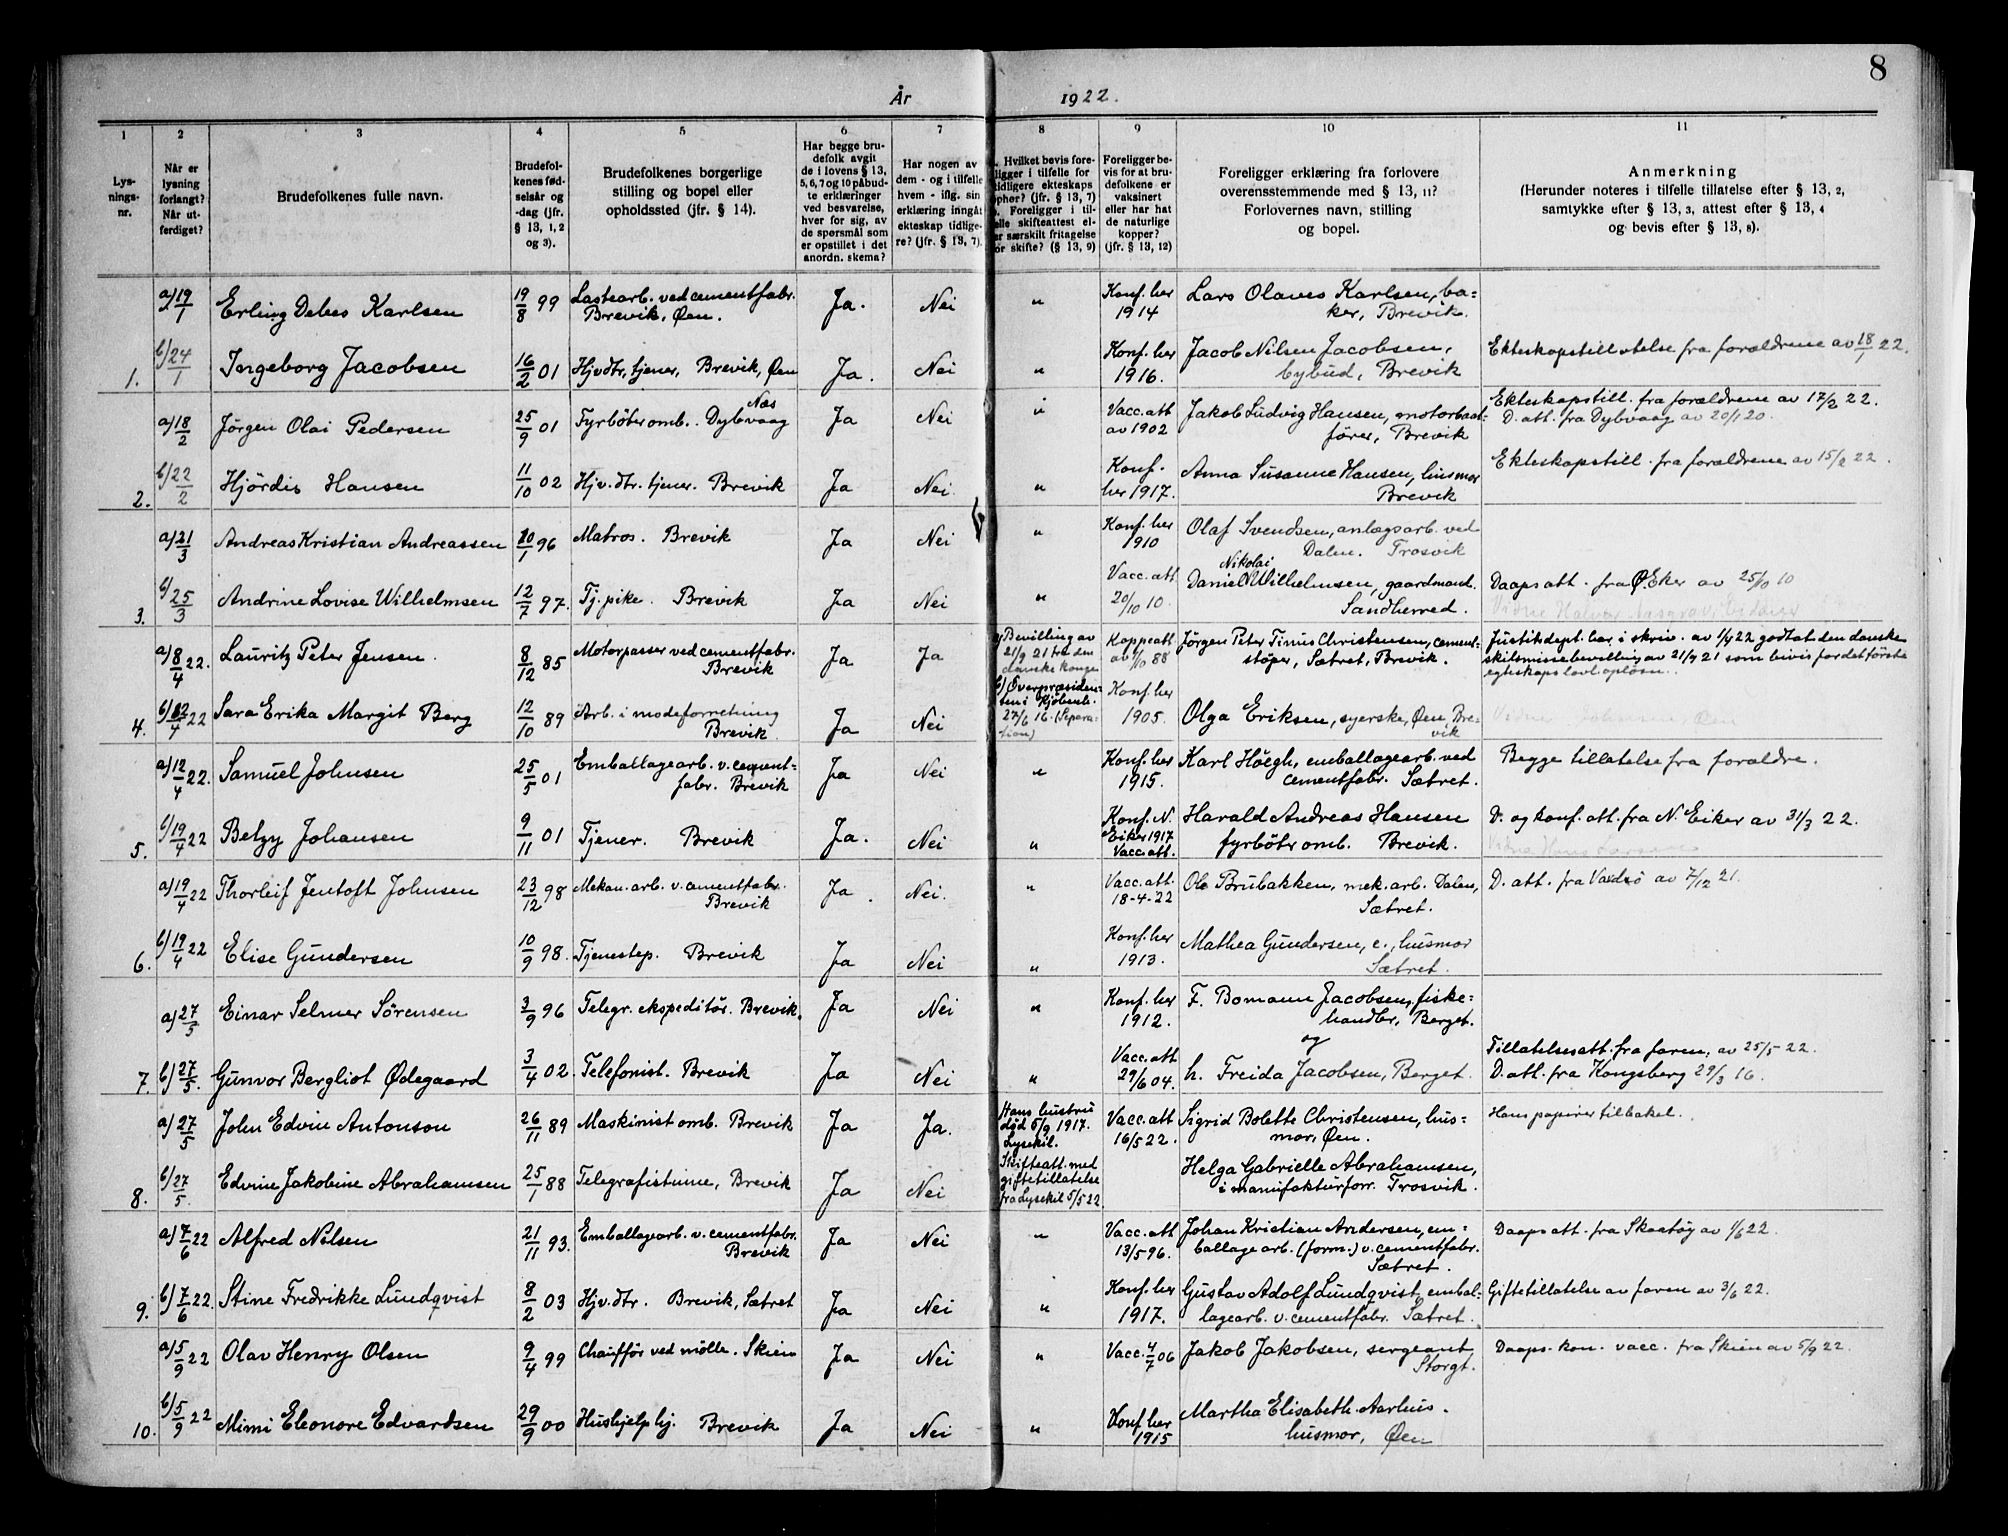 8
År 1922.
1 2 3 4 5 6 7 8 9 10 11
Lys-
nings-
nr.
Når er
lysning
forlangt?
Når ut-
ferdiget?
Brudefolkenes fulle navn.
Brudefol-
kenes fød-
selsår og
-dag (jfr.
§ 13, 1, 2
og 3).
Brudefolkenes borgerlige
stilling og bopel eller
opholdssted (jfr. § 14).
Har begge bru-
defolk avgit
de i lovens § 13,
5, 6, 7 og 10 påbud-
te erklæringer
ved besvarelse,
hver for sig, av
de spørsmål som
er opstillet i det
anordn. skema?
Har nogen av
dem - og i tilfelle
hvem - iflg. sin
erklæring inngått
ekteskap tidlige-
re? (jfr. § 13, 7).
Hvilket bevis fore-
ligger i tilfelle for
tidligere ekteskaps
ophør? (jfr. § 13, 7)
Foreligger i til-
felle skifteattest el-
ler særskilt fritagelse
for skifte? (§ 13, 9)
Foreligger be-
vis for at bru-
defolkene er
vaksinert
eller har hat
de naturlige
kopper?
(jfr. § 13, 12)
Foreligger erklæring fra forlovere
overensstemmende med § 13, 11?
Forlovernes navn, stilling
og bopel.
Anmerkning
(Herunder noteres i tilfelle tillatelse efter § 13, 2,
samtykke efter § 13, 3, attest efter § 13, 4
og bevis efter § 13, 8).
a) 19/1 Erling Debes Karlsen 19/8 99 Lastearb. ved cementfabr. Brevik, Øen. Ja. Nei " Konf. her 1914 Lars Olaves Karlsen, ba-
ker, Brevik.
1. b) 24/1 Ingeborg Jacobsen 16/2 01 Hjv. dtr, tjener, Brevik, Øen Ja. Nei " Konf. her 1916. Jacob Nilsen Jacobsen,
bybud, Brevik Ekteskapstillatelse fra forældrene av 18/1 22.
a) 18/2 Jörgen Olai Pedersen 25/9 01 Fyrböter omb. Næs Dybvaag Ja Nei " Vacc. att av 1902 Jakob Ludvig Hansen, motorbaat-
förer, Brevik Ekteskapstill. fra forældrene av 17/2 22.
D. att. fra Dybvaag av 20/1 20.
2. b) 22/2 Hjördis Hansen 11/10 02 Hjv. dtr. tjener. Brevik Ja Nei. " Konf. her 1917. Anna Susanne Hansen, husmor
Brevik Ekteskapstill. fra forældrene av 15/2 22.
a) 21/3 Andreas Kristian Andreassen 96 Matros. Brevik Ja Nei " Konf. her 1910 Olaf Svendsen, anlægsarb. ved
Dalen. Trosvik
3. b) 25/3 Andrine Lovise Wilhelmsen 12/7 97. Tj. pike. Brevik Ja Nei " Vacc. att. 20/10 10. Daniel Nikolai Wilhelmsen, gaardmand.
Sandherred. Daapsatt. fra Ø. Eker av 25/10 10
a) 8/4 22. Lauritz Peter Jensen. 8/12 85 Motorpasser ved cementfabr. Brevik Ja Ja a) Bevilling av
21/9 21 fra den
danske konge Koppeatt. av 88 Jörgen Peter Tinus Christensen, cement-
stöper, Sætret, Brevik. Justitsdept. har i skriv. av 1/4 22 godtat den danske
skilsmissebevilling av 21/9 21 som bevis for det første
egteskaps lovl. opløsn.
4. b) 22 Sara Erika Margit Berg 12/10 89 Arb. i modeforretning Brevik. Ja Nei b) Overpræsiden-
ten i Kjöbenh.
27/6 16. (Separa-
tion) Konf. her 1905. Olga Eriksen, syerske, Øen, Bre-
vik
a) 12/4 22. Samuel Johnsen 25/5 01 Emballagearb. v. cement-
fabr. Brevik Ja Nei " Konf. her 1915. Karl Höegh, emballagearb. ved
cementfabr. Sætret. Begge tillatelse fra forældre.
5. b) 19/4 22 Betzy Johansen 9/11 01 Tjener. Brevik Ja. Nei " Konf. N. Eiker 1917 Vacc. att. Harald Andreas Hansen
fyrböter omb. Brevik. D. og konf. att. fra N. Eiker av 31/3 22.
Vidne Hans Larsen
a) 19/4 22 Thorleif Jentoft Johnsen 23/12 98 Mekan. arb. v. cementfabr. Brevik Ja. Nei. " Vacc. att. 18-4-22 Ole Brubakken, mek. arb. Dalen,
Sætret. D. att. fra Vardö av 7/12 21.
6. b) 19/4 22 Elise Gundersen 10/9 98. Tjenestep. Brevik Ja Nei " Konf. her 1913. Mathea Gundersen, e., husmor
Sætret.
a) 27/5 Einar Selmer Sörensen 3/9 96 Telegr. ekspeditör. Brevik. Ja Nei " Konf. her 1912. F. Bomann Jacobsen, fiske-
handler, Berget.
og
7. b) 27/5. Gunvor Bergliot Ødegaard 3/4 02 Telefonist. Brevik Ja Nei " Vacc. att 29/6 04. h. Freida Jacobsen, Berget. Tillatelsesatt. fra faren, av 25/5 22.
D. att. fra Kongsberg 29/3 16.
a) 27/5 John Edvin Antonson 26/11 89 Maskinist omb. Brevik Ja Ja. Hans hustru
död 5/9 1917.
Lysekil. Vacc. att 16/5 22. Sigrid Bolette Christensen, hus-
mor, Øen. Hans papirer tilbakel.
8. b) 27/5. Edvine Jakobine Abrahamsen 25/1 88 Telegrafistinne, Brevik Ja Nei Skifteatt. med
giftetillatelse
fra Lysekil 5/5 22 Helga Gabrielle Abrahamsen,
i manufakturforr. Trosvik.
a) 7/6 22 Alfred Nilsen 21/11 93. Emballagearb. v. cementfabr. Brevik Ja Nei " Vacc. att 13/5 96. Johan Kristian Andersen, em-
ballagearb. (form.) v. cementfabr.
Sætret. Daapsatt. fra Skaatøy av 1/6 22.
9. b) 7/6 22. Stine Fredrikke Lundqvist 8/2 03 Hjv. dtr. Brevik, Sætret Ja Nei " Konf. her 1917. Gustav Adolf Lundqvist, embal-
lagearb. v. cementfabr. Sætret. Giftetillatelse av faren av 3/6 22.
a) 5/9 22 Olav Henry Olsen 9/4 99 Chauffør ved mölle. Skien Ja Nei " Vacc. 4/7 06 Jakob Jakobsen, sergeant
Storgt. Daaps. kon. vacc. fra Skien av 5/9 22.
10. b) 5/9 22 Mimi Eleonore Edvardsen 29/9 00 Hushjelp hj. Brevik Ja Nei " Konf. her 1915 Martha Elisabeth Aarhus.
husmor, Øen